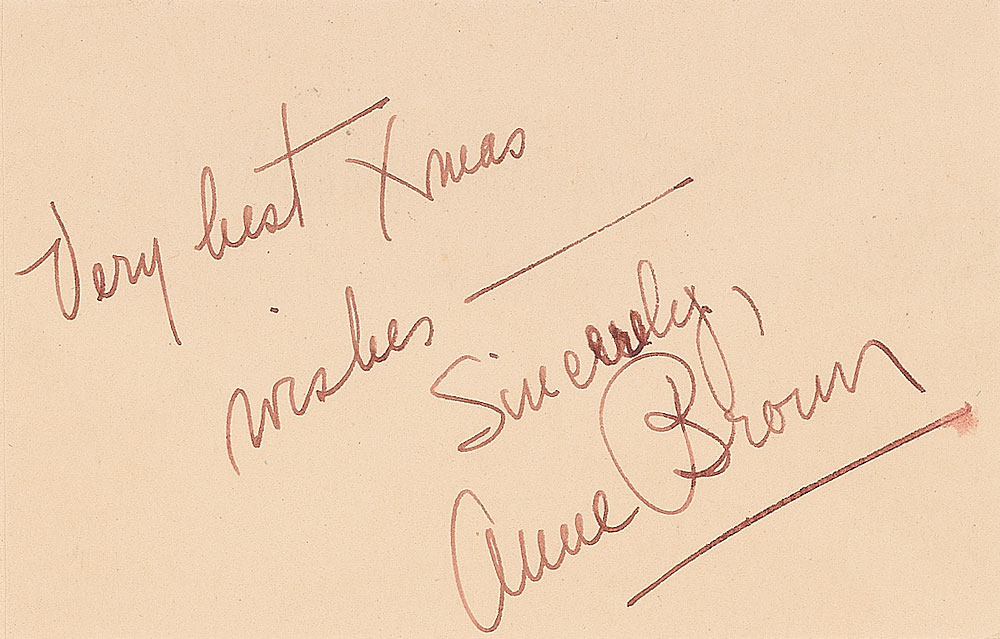 Very best Xmas
wishes —
Sincerely,
Anne Brown